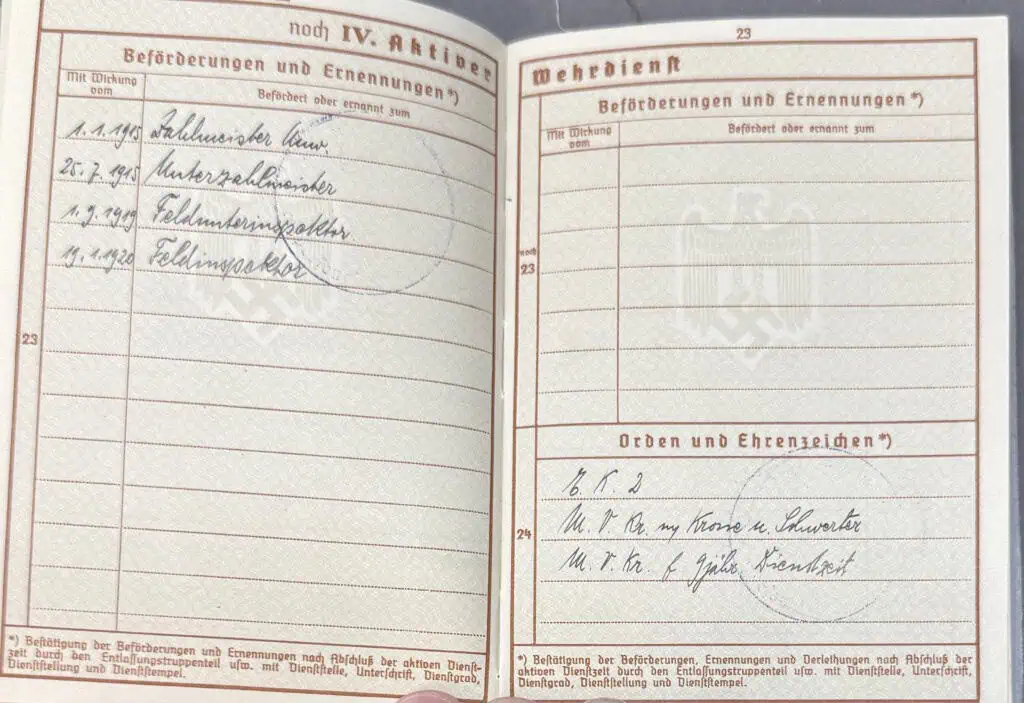 noch IV. Aktiver
Beförderungen und Ernennungen*)
Mit Wirkung vom
Befördert oder ernannt zum
1.1.1915 Zahlmeister Anw.
25.7.1915 Unterzahlmeister
1.9.1919 Feldunterinspektor
19.1.1920 Feldinspektor
23
*) Bestätigung der Beförderungen und Ernennungen nach Abschluß der aktiven Dienst-
zeit durch den Entlassungstruppenteil usw. mit Dienststelle, Unterschrift, Dienstgrad,
Dienststellung und Dienststempel.
23
Wehrdienst
Beförderungen und Ernennungen*)
Mit Wirkung vom
Befördert oder ernannt zum
noch
23
Orden und Ehrenzeichen*)
E. K. 2
M. V. Kr. m/ Krone u. Schwerter
M. V. Kr. f 9jähr. Dienstzeit
24
*) Bestätigung der Beförderungen, Ernennungen und Verleihungen nach Abschluß der
aktiven Dienstzeit durch den Entlassungstruppenteil usw. mit Dienststelle, Unterschrift,
Dienstgrad, Dienststellung und Dienststempel.